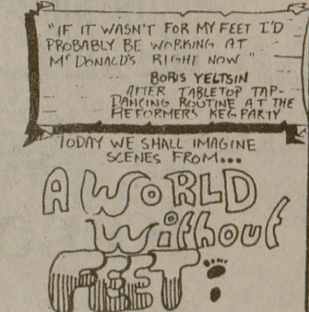 "IF IT WASN'T FOR MY FEET I'D
PROBABLY BE WORKING AT
McDONALD'S RIGHT NOW"
BORIS YELTSIN
AFTER TABLETOP TAP-
DANCING ROUTINE AT THE
REFORMERS KEG PARTY
TODAY WE SHALL IMAGINE
SCENES FROM...
A WORLD
WithOUt
FEET